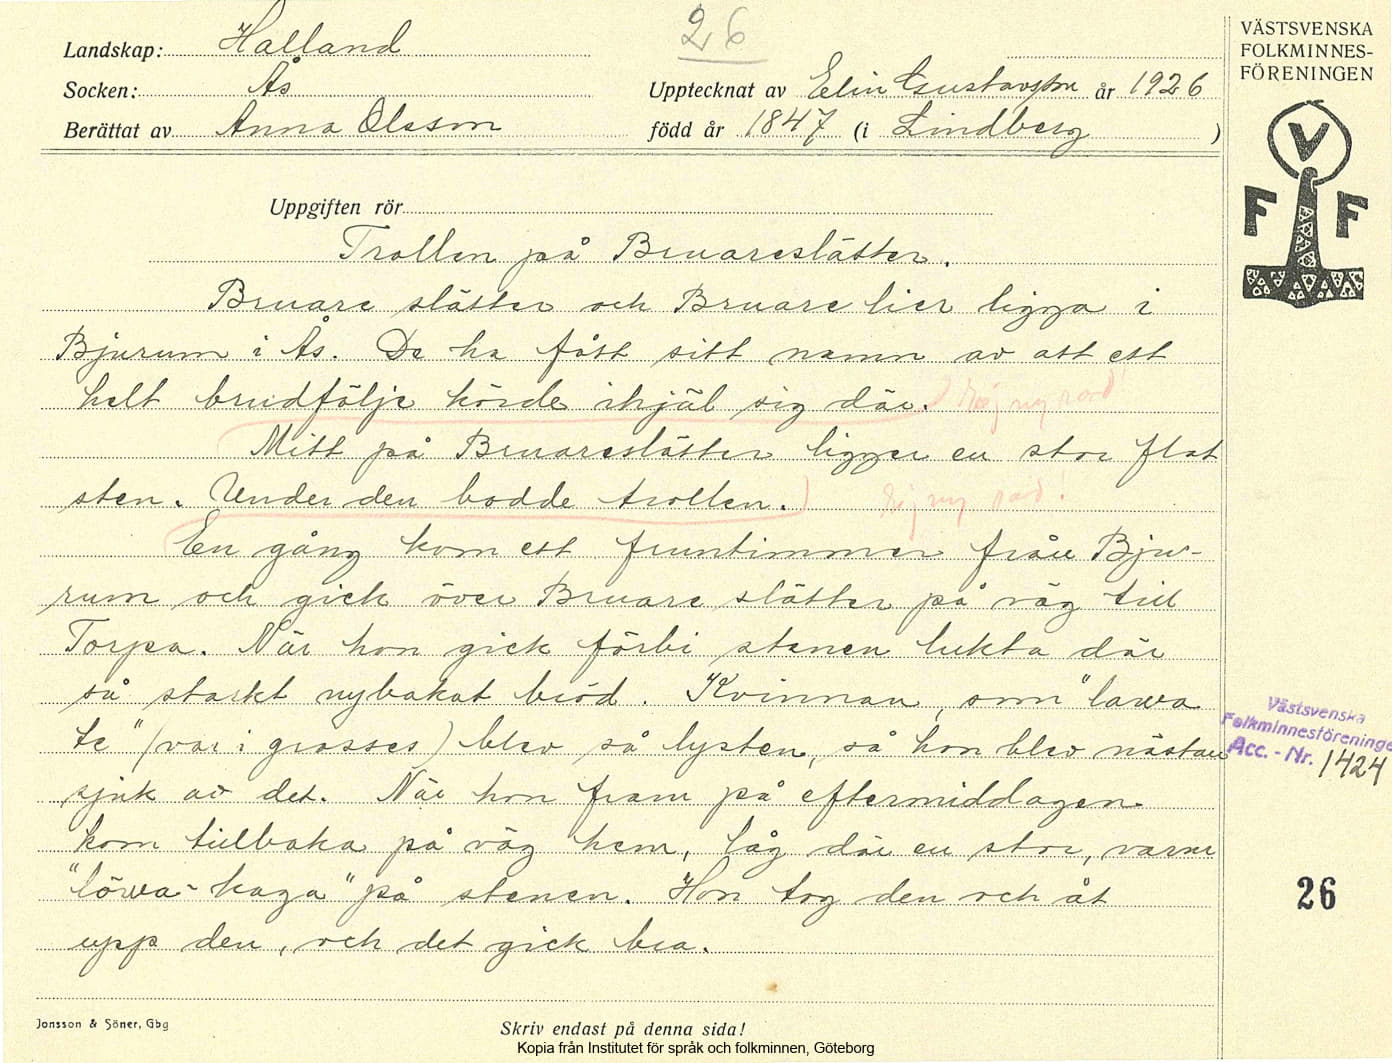 26
Landskap: Halland
Socken: Ås
Upptecknat av Elin Gustavsson år 1926
Berättat av Anna Olsson född år 1847 (i Lindberg)
VÄSTSVENSKA
FOLKMINNES-
FÖRENINGEN
V
F F
Uppgiften rör
Trollen på Bruareslätter.
Bruare slätter och Bruare lier ligga i
Bjurum i Ås. De ha fått sitt namn av att ett
helt brudfölje körde ihjäl sig där. Ej ny rad!
Mitt på Bruareslätter ligger en stor flat
sten. Under den bodde trollen. Ej ny rad!
En gång kom ett fruntimmer från Bju-
rum och gick över Bruare slätter på väg till
Torpa. När hon gick förbi stenen lukta där
så starkt nybakat bröd. Kvinnan, som "lawa
te" (var i grosses) blev så lysten, så hon blev nästan
sjuk av det. När hon fram på eftermiddagen
kom tillbaka på väg hem, låg där en stor, varm
"löwa-kaga" på stenen. Hon tog den och åt
upp den, och det gick bra.
Västsvenska
Folkminnesföreningen
Acc. - Nr. 1424
26
Jonsson & Söner, Gbg
Skriv endast på denna sida!
Kopia från Institutet för språk och folkminnen, Göteborg